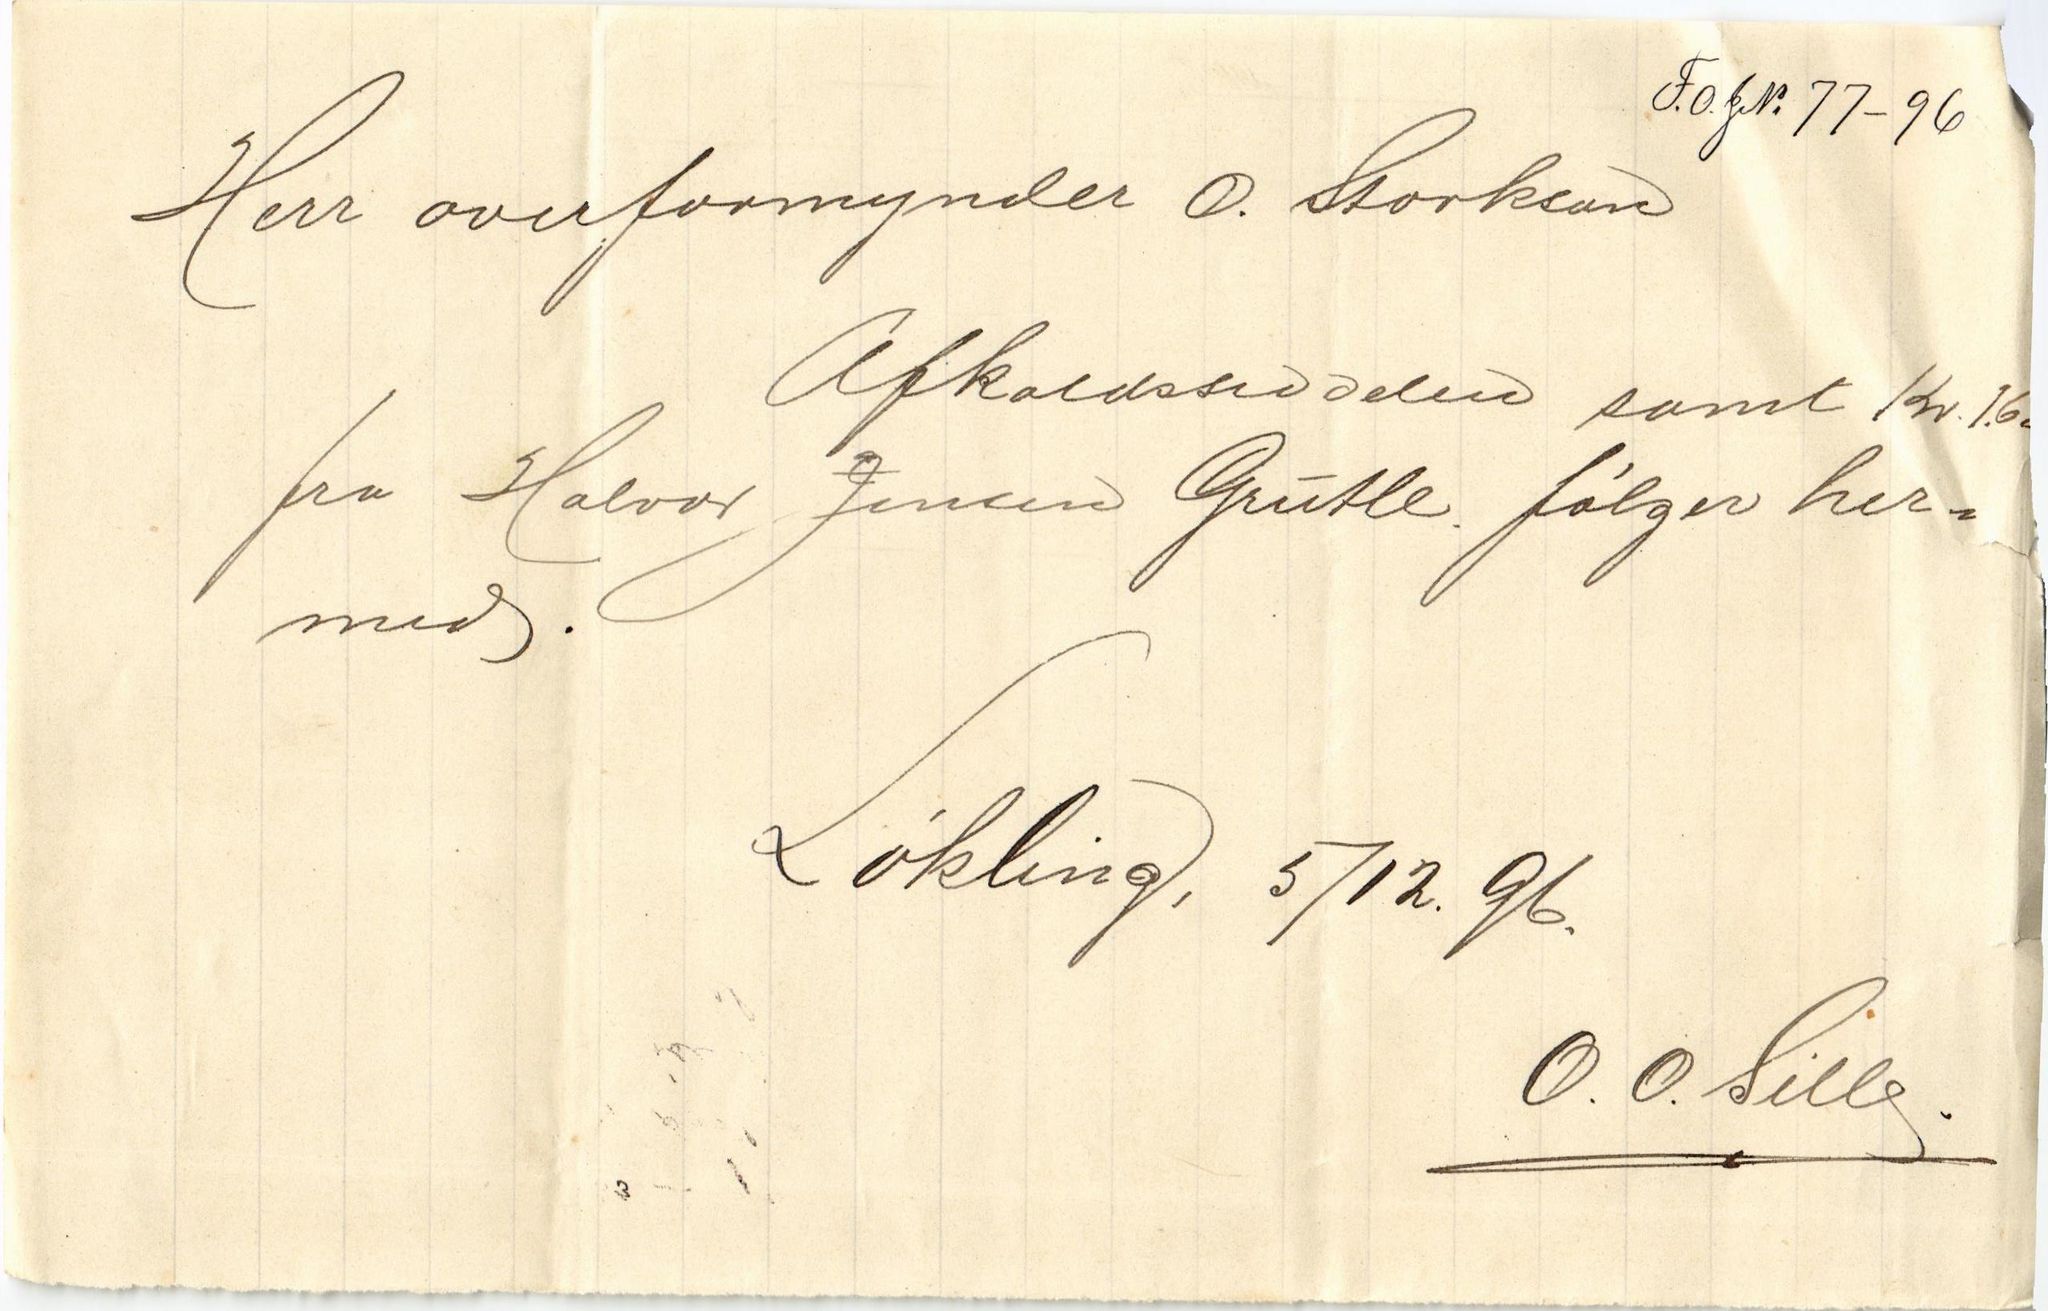 F.O.J.Nr. 77-96
Herr overformynder O. Storksen
Afkaldsseddelen samt Kr. 1.60
fra Halvor Jensen Grutle følger her-
med.
Løkling, 5/12. 96.
O. O. Lilleg.